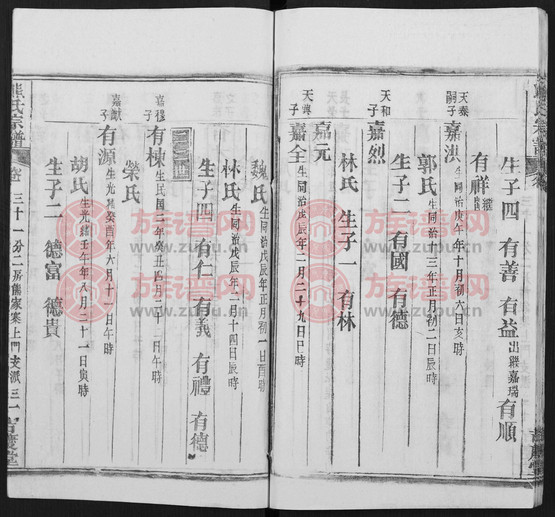 生子四 有善 有益出繼嘉瑞 有順
有祥
天泰嗣子 嘉洪 生同治庚午年十月初六日亥時
郭氏 生同治十三年正月初二日辰時
生子二 有國 有德
天和子 嘉烈
林氏 生子一 有林
嘉元
天典子 嘉全 生同治戊辰年二月二十九日巳時
魏氏 生同治戊辰年正月初一日酉時
林氏 生同治戊辰年二月十四日辰時
生子四 有仁 有義 有禮 有德
嘉穆子 有棟 生民國二年癸丑四月三十日午時
榮氏
嘉猷子 有源 生光緒癸酉年六月十一日午時
胡氏 生光緒壬午年八月二十一日寅時
生子二 德富 德貴
熊氏宗譜
三十一分二房熊家寨上門支派三一
族谱网
www.zupu.cn